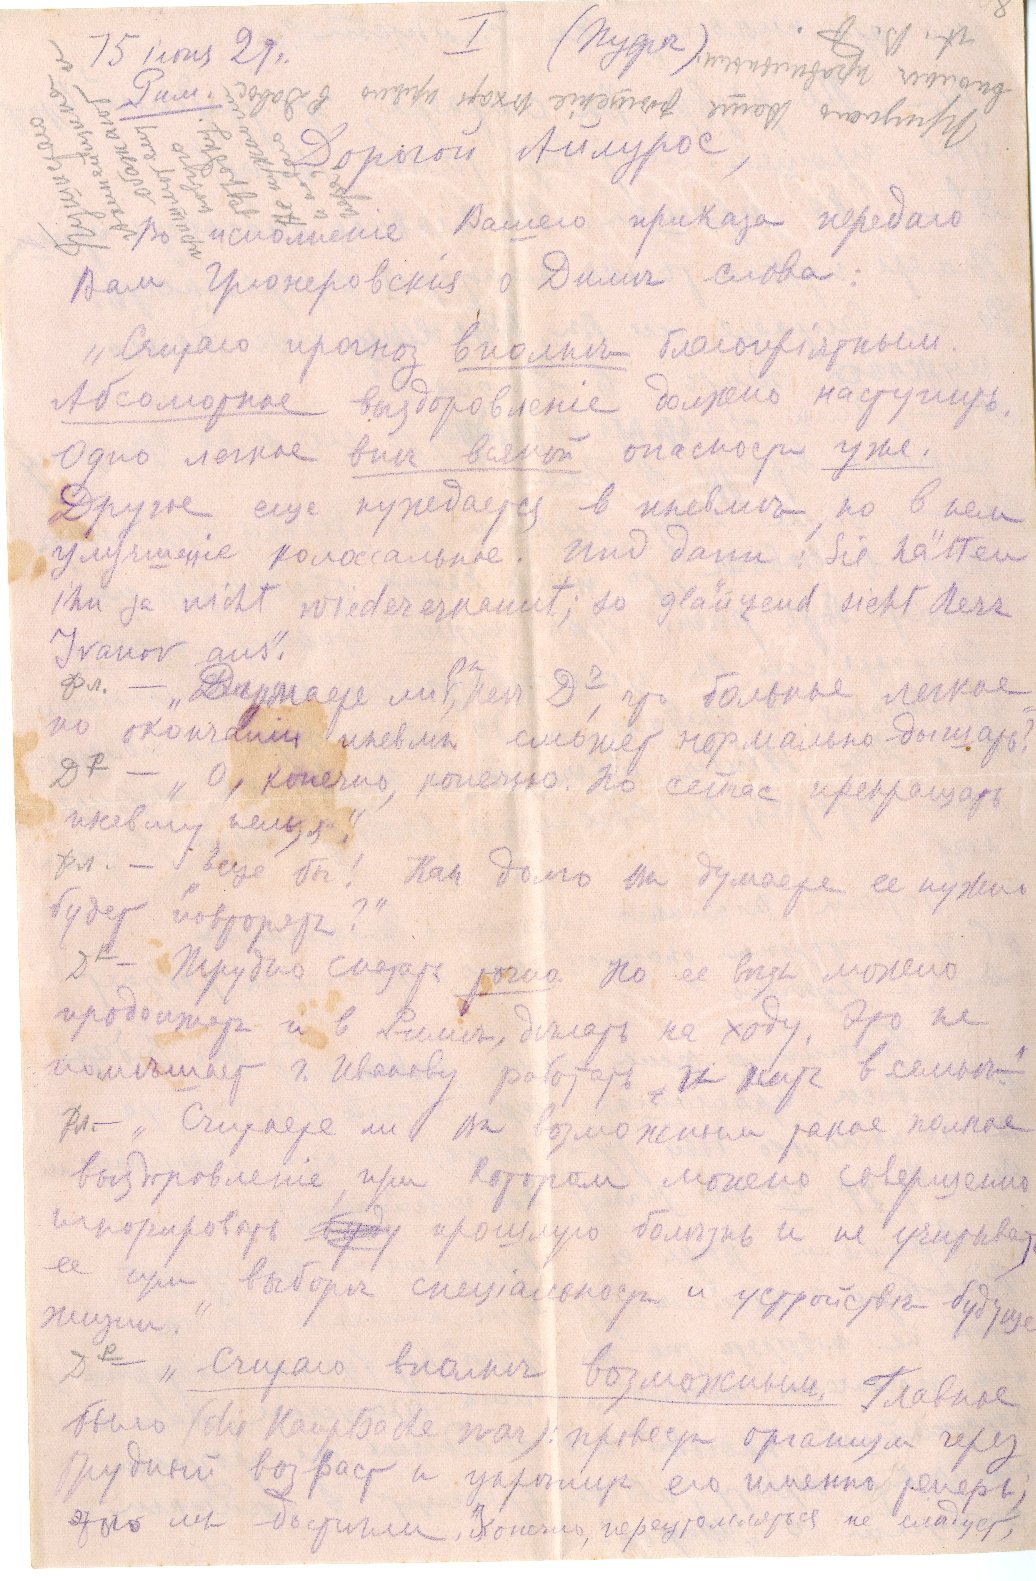 8
15 июня 29г. I (Пудра)
Рим.
Дорогой Айлурос,
Во исполненіе Вашего приказа передаю
Вам Грюнеровскія о Димѣ слова:
„Считаю прогноз вполнѣ благопріятным.
Абсолютное выздоровленіе должно наступить.
Одно легкое внѣ всякой опасности уже.
Другое еще нуждается в пневмѣ, но в нем
улучшеніе колоссальное. Und dann: Sie hätten
ihn ja nicht wiedererkannt; so glänzend sieht Herr
Ivanov aus“.
Фл. — „Думаете ли Вы, Herr Dr, что больное легкое
по окончаніи пневмы сможет нормально дышать?
Др — „О, конечно, конечно. Но сейчас прекращать
пневму нельзя“.
Фл. — „Еще бы! Как долго Вы думаете ее нужно
будет повторять?“
Др — Трудно сказать точно. Но ее вѣдь можно
продолжать и в Римѣ, дѣлать на ходу. Это не
помѣшает г. Иванову работать и жить в семьѣ“.
Фл. — „Считаете ли Вы возможным такое полное
выздоровленіе, при котором можно совершенно
игнорировать прошлую болѣзнь и не учитывать
ее при выборѣ спеціальности и устройствѣ будуще
жизни.“
Др — „Считаю вполнѣ возможным. Главное
было (die Hauptsache war): провести организм через
трудный возраст и укрѣпить его именно теперь;
это мы достигли. Конечно, переутомляться не слѣдует,